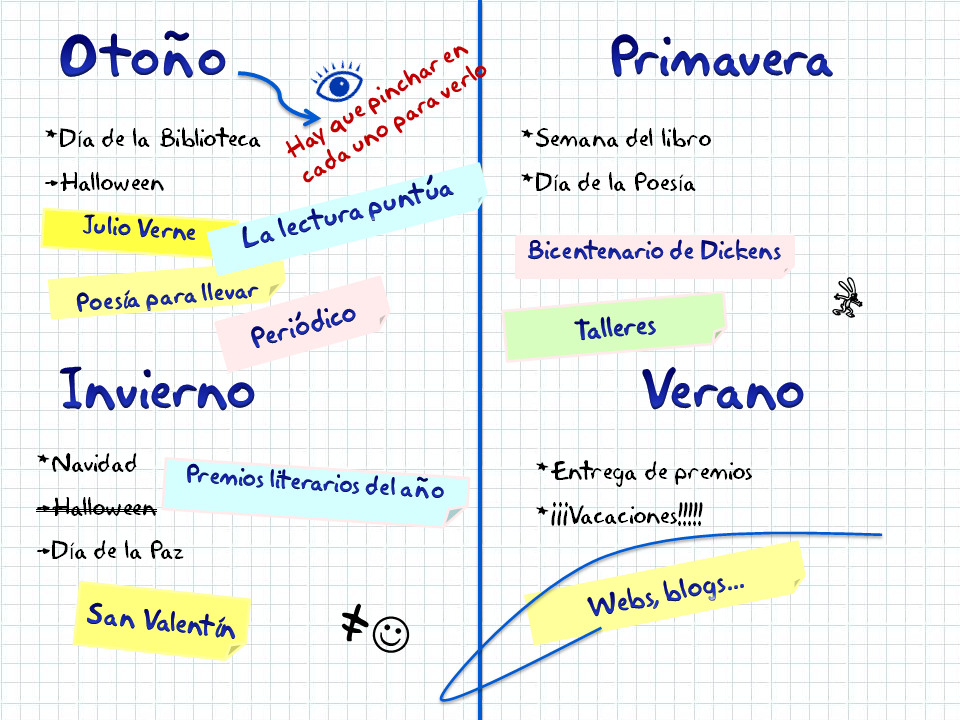 Otoño
Hay que pinchar en
cada uno para verlo
*Día de la Biblioteca
→Halloween
Julio Verne
La lectura puntúa
Poesía para llevar
Periódico
Primavera
*Semana del libro
*Día de la Poesía
Bicentenario de Dickens
Talleres
Invierno
*Navidad
Premios literarios del año
→Halloween
→Día de la Paz
San Valentín
≠☺
Verano
*Entrega de premios
*¡¡¡Vacaciones!!!!!
Webs, blogs...